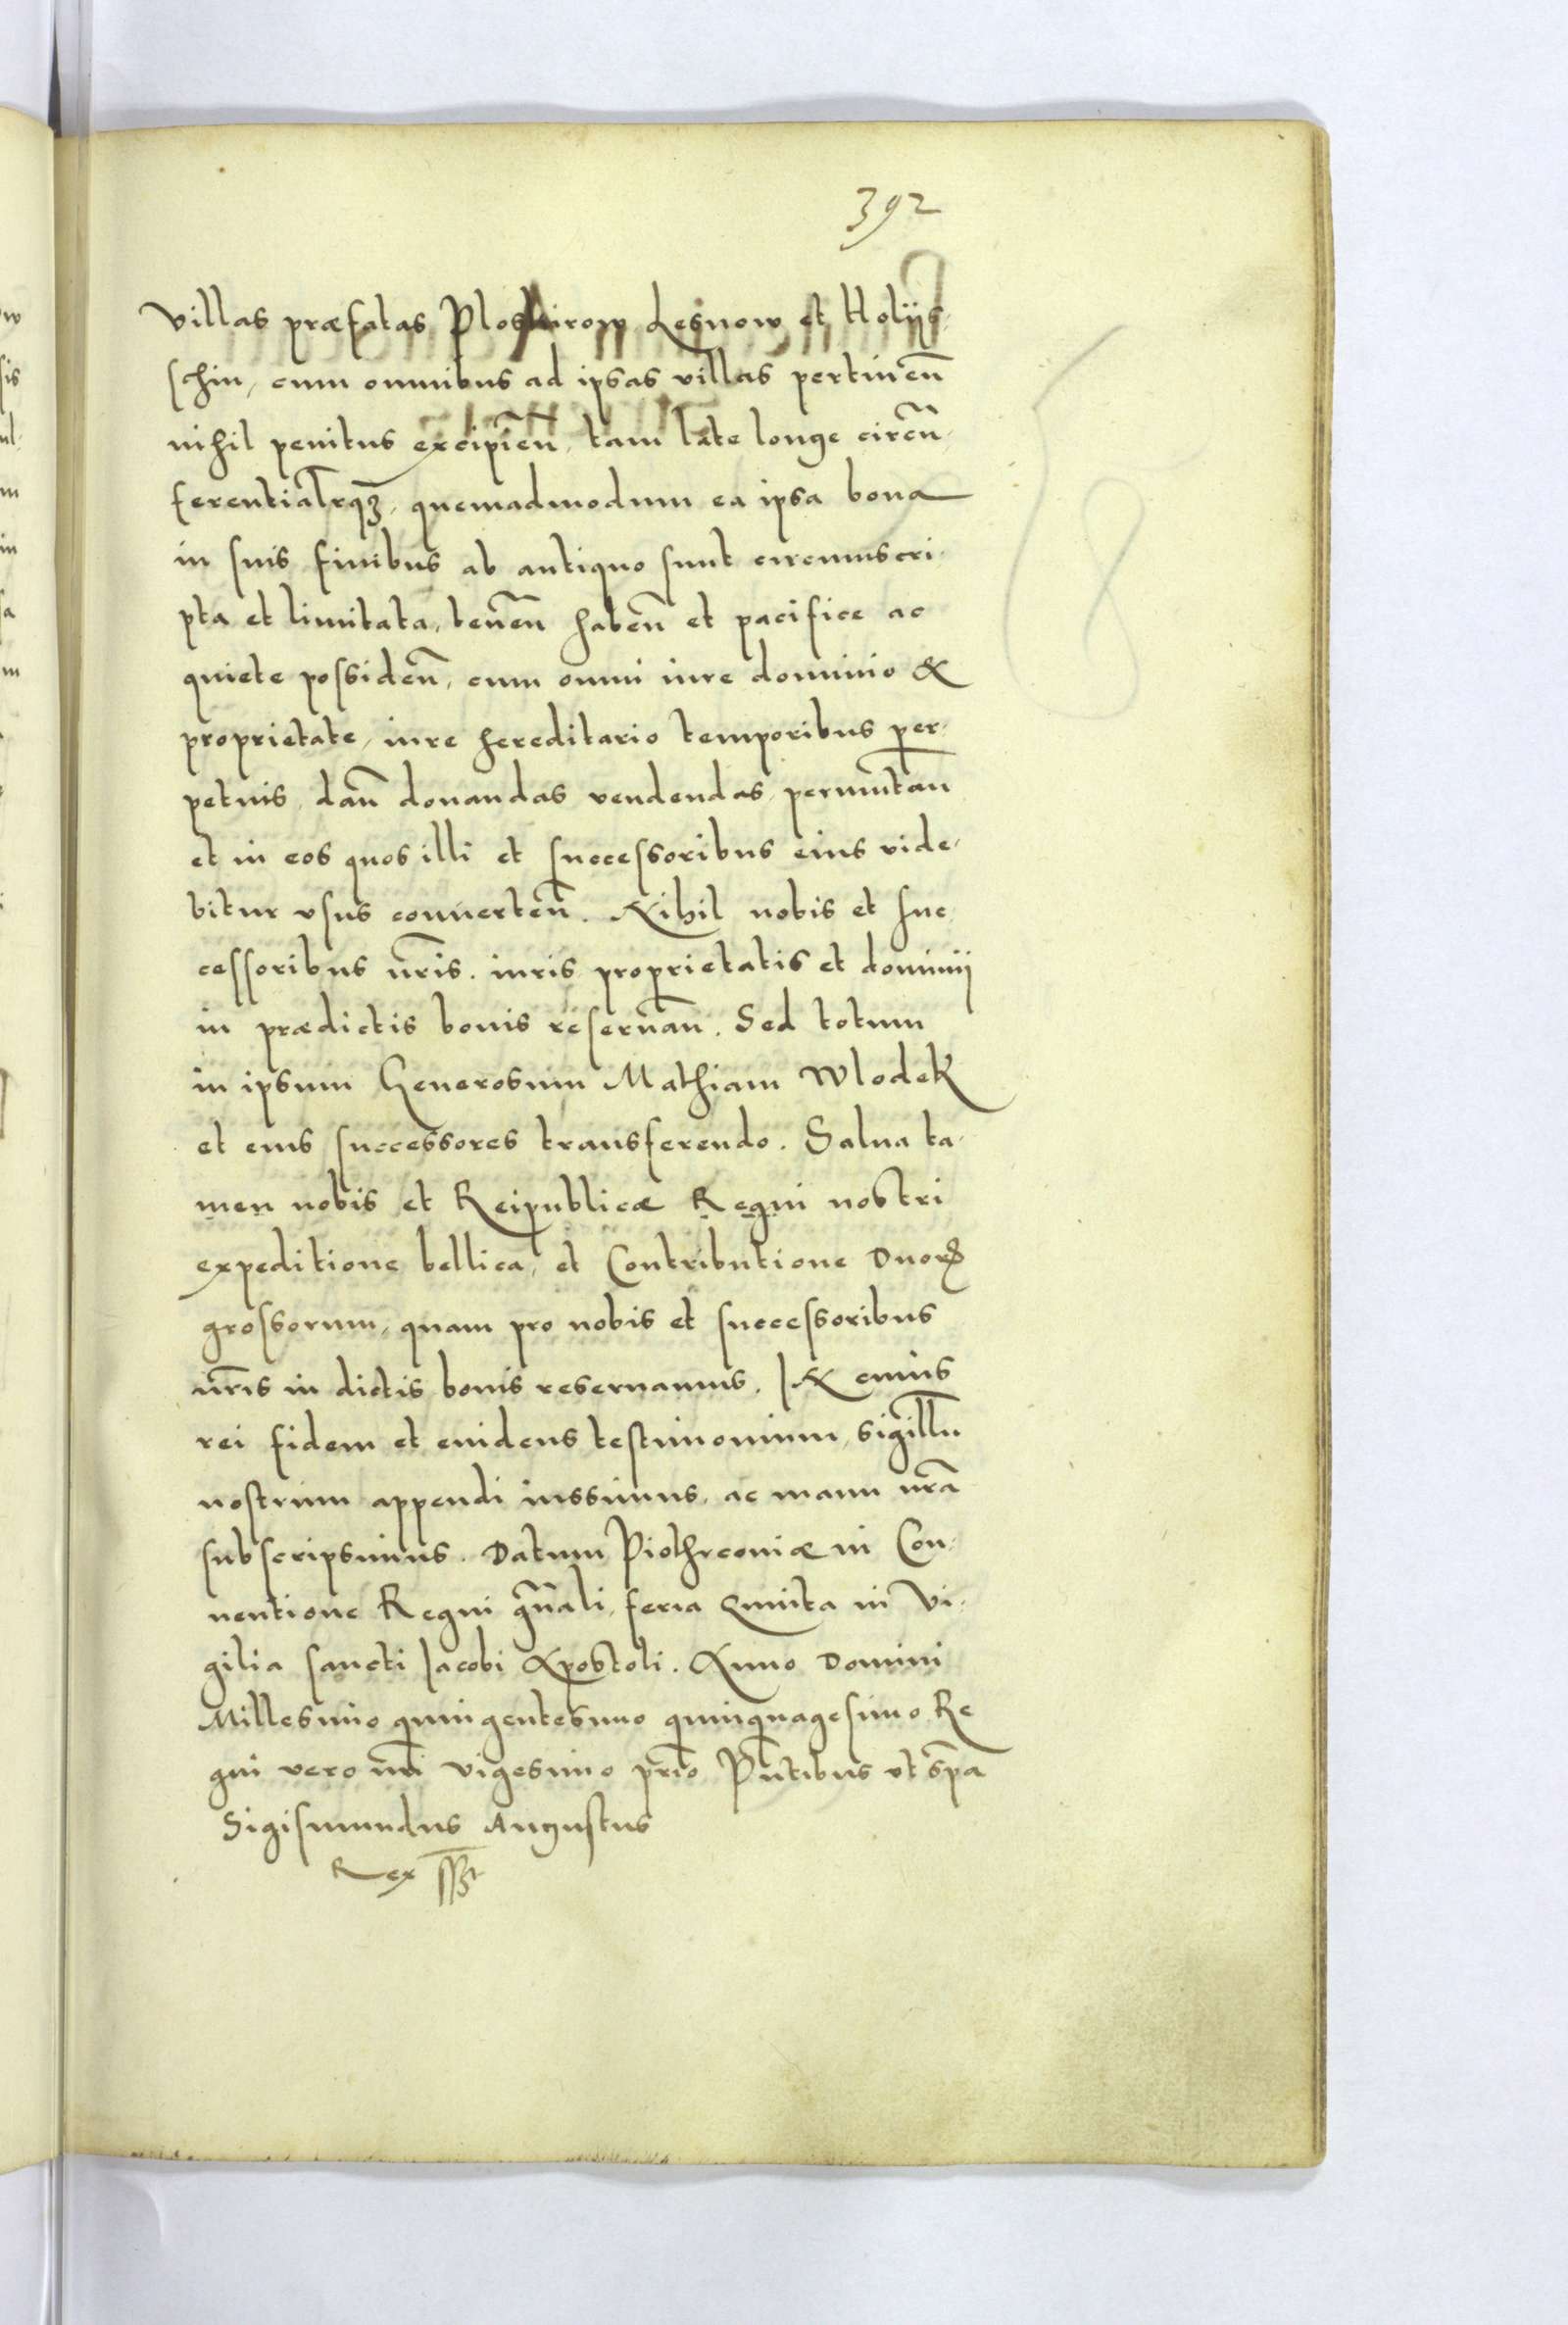 392
villas præfatas Ploskirow Lesnow et Holijs-
schin, cum omnibus ad ipsas villas pertineñ
nihil penitus excipieñ, tam late longe circũ-
ferentialrqꝫ, quemadmodum ea ipsa bona
in suis finibus ab antiquo sunt circumscri-
pta et limitata, teneñ habeñ et pacifice ac
quiete possideñ, cum omni iure dominio &
proprietate, iure hereditario temporibus per-
petuis, dañ donandas vendendas, permutañ
et in eos quos illi et successoribus eius vide-
bitur vsus conuerteñ. Nihil nobis et suc
cessoribus ñris. iuris proprietatis et dominij
in prædictis bonis reseruañ. Sed totum
in ipsum Generosum Mathiam Wlodek
et eius successores transferendo. Salua ta-
men nobis et Reipublicæ Regni nostri
expeditione bellica, et Contributione Duorꝝ
grossorum, quam pro nobis et successoribus
ñris in dictis bonis reseruamus. In cuius
rei fidem et euidens testimonium, sigillũ
nostrum appendi iussimus, ac manu ñra
subscripsimus. Datum Piothrcouiæ in Con-
uentione Regni gñali, feria Quinta in Vi-
gilia sancti Jacobi Apostoli. Anno Domini
Millesimo quingentesimo quinquagesimo Re
gni vero ñri vigesimo prĩo Pñtibus vt sp̃a
Sigismundus Augustus
Rex sst